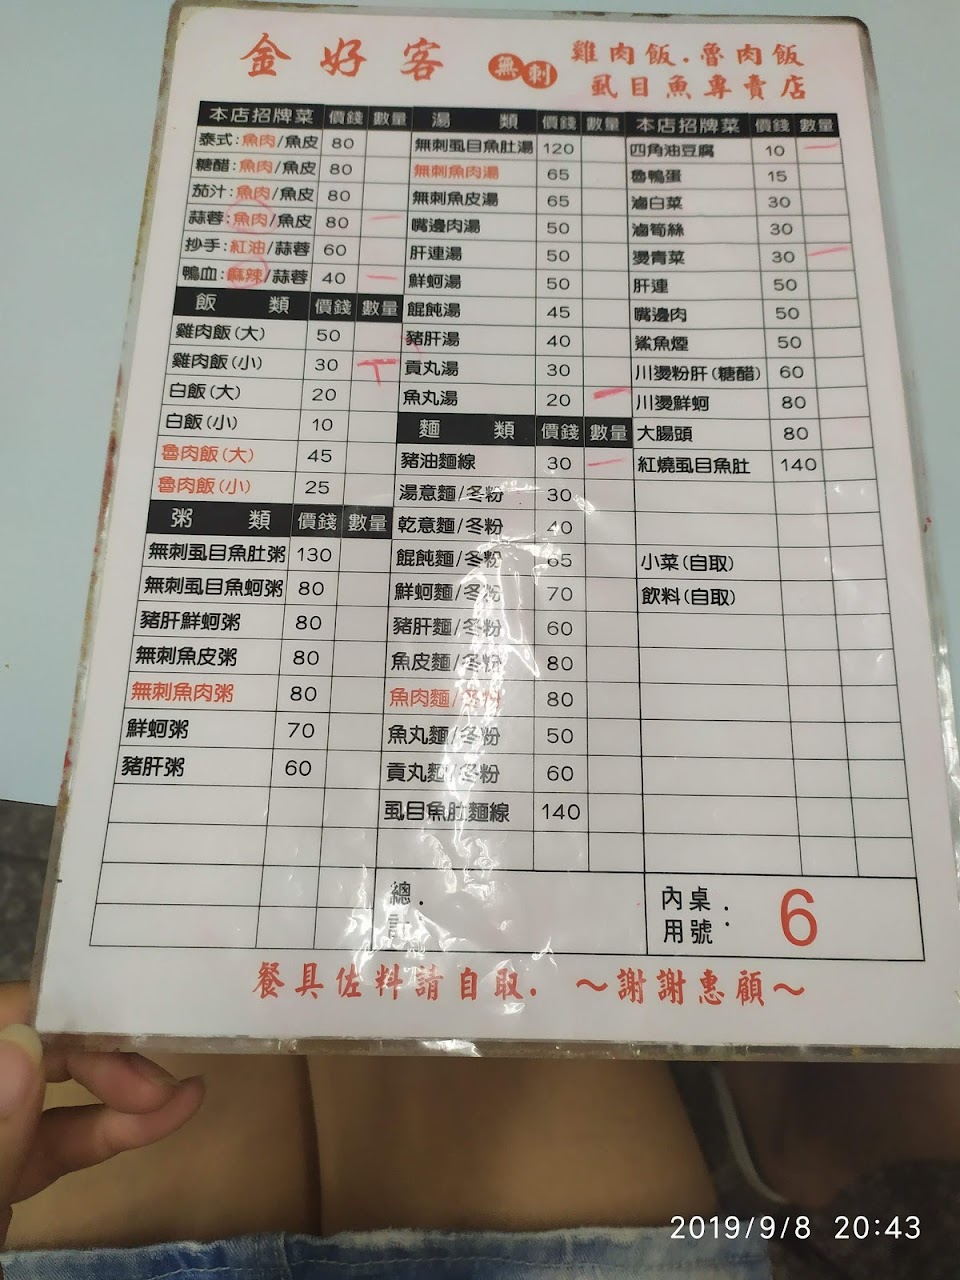 金好客 無刺 雞肉飯.魯肉飯
虱目魚專賣店
本店招牌菜 價錢 數量
泰式:魚肉/魚皮 80
糖醋:魚肉/魚皮 80
茄汁:魚肉/魚皮 80
蒜蓉:魚肉/魚皮 80
抄手:紅油/蒜蓉 60
鴨血:麻辣/蒜蓉 40
飯類 價錢 數量
雞肉飯(大) 50
雞肉飯(小) 30
白飯(大) 20
白飯(小) 10
魯肉飯(大) 45
魯肉飯(小) 25
粥類 價錢 數量
無刺虱目魚肚粥 130
無刺虱目魚蚵粥 80
豬肝鮮蚵粥 80
無刺魚皮粥 80
無刺魚肉粥 80
鮮蚵粥 70
豬肝粥 60
湯類 價錢 數量
無刺虱目魚肚湯 120
無刺魚肉湯 65
無刺魚皮湯 65
嘴邊肉湯 50
肝連湯 50
鮮蚵湯 50
餛飩湯 45
豬肝湯 40
貢丸湯 30
魚丸湯 20
麵類 價錢 數量
豬油麵線 30
湯意麵/冬粉 30
乾意麵/冬粉 40
餛飩麵/冬粉 65
鮮蚵麵/冬粉 70
豬肝麵/冬粉 60
魚皮麵/冬粉 80
魚肉麵/冬粉 80
魚丸麵/冬粉 50
貢丸麵/冬粉 60
虱目魚肚麵線 140
本店招牌菜 價錢 數量
四角油豆腐 10
魯鴨蛋 15
滷白菜 30
滷筍絲 30
燙青菜 30
肝連 50
嘴邊肉 50
鯊魚煙 50
川燙粉肝(糖醋) 60
川燙鮮蚵 80
大腸頭 80
紅燒虱目魚肚 140
小菜(自取)
飲料(自取)
總計:
內用桌號: 6
餐具佐料請自取. ～謝謝惠顧～
2019/9/8 20:43